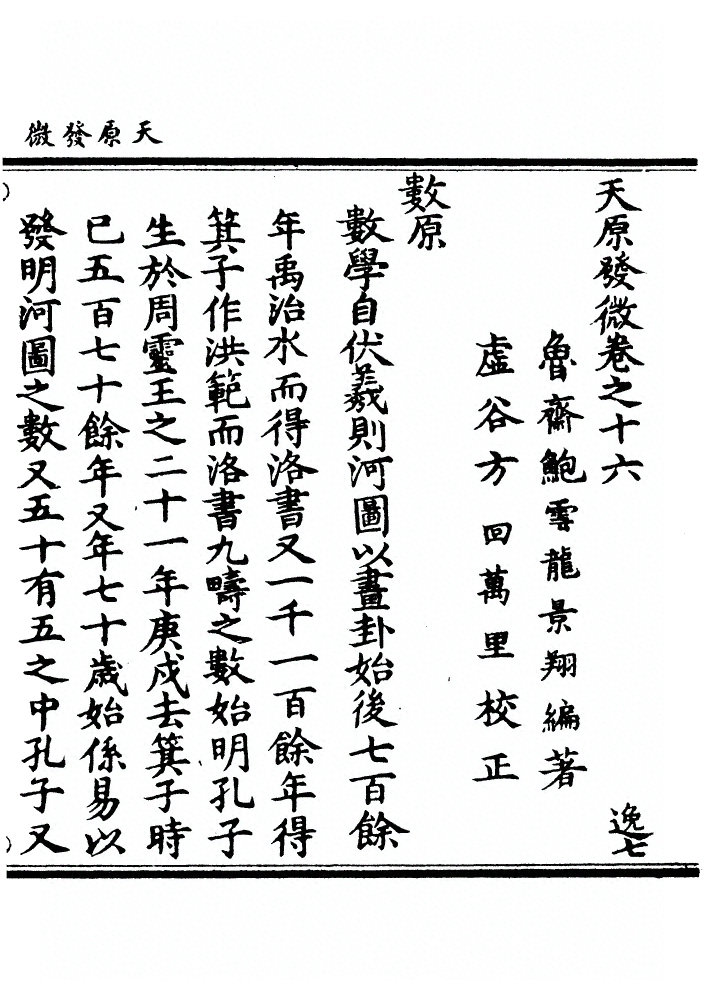 天原發微
天原發微卷之十六
逸七
魯齋鮑雲龍景翔編著
虛谷方回萬里校正
數原
數學自伏羲則河圖以畫卦始後七百餘
年禹治水而得洛書又一千一百餘年得
箕子作洪範而洛書九疇之數始明孔子
生於周靈王之二十一年庚戌去箕子時
已五百七十餘年又年七十歲始係易以
發明河圖之數又五十有五之中孔子又